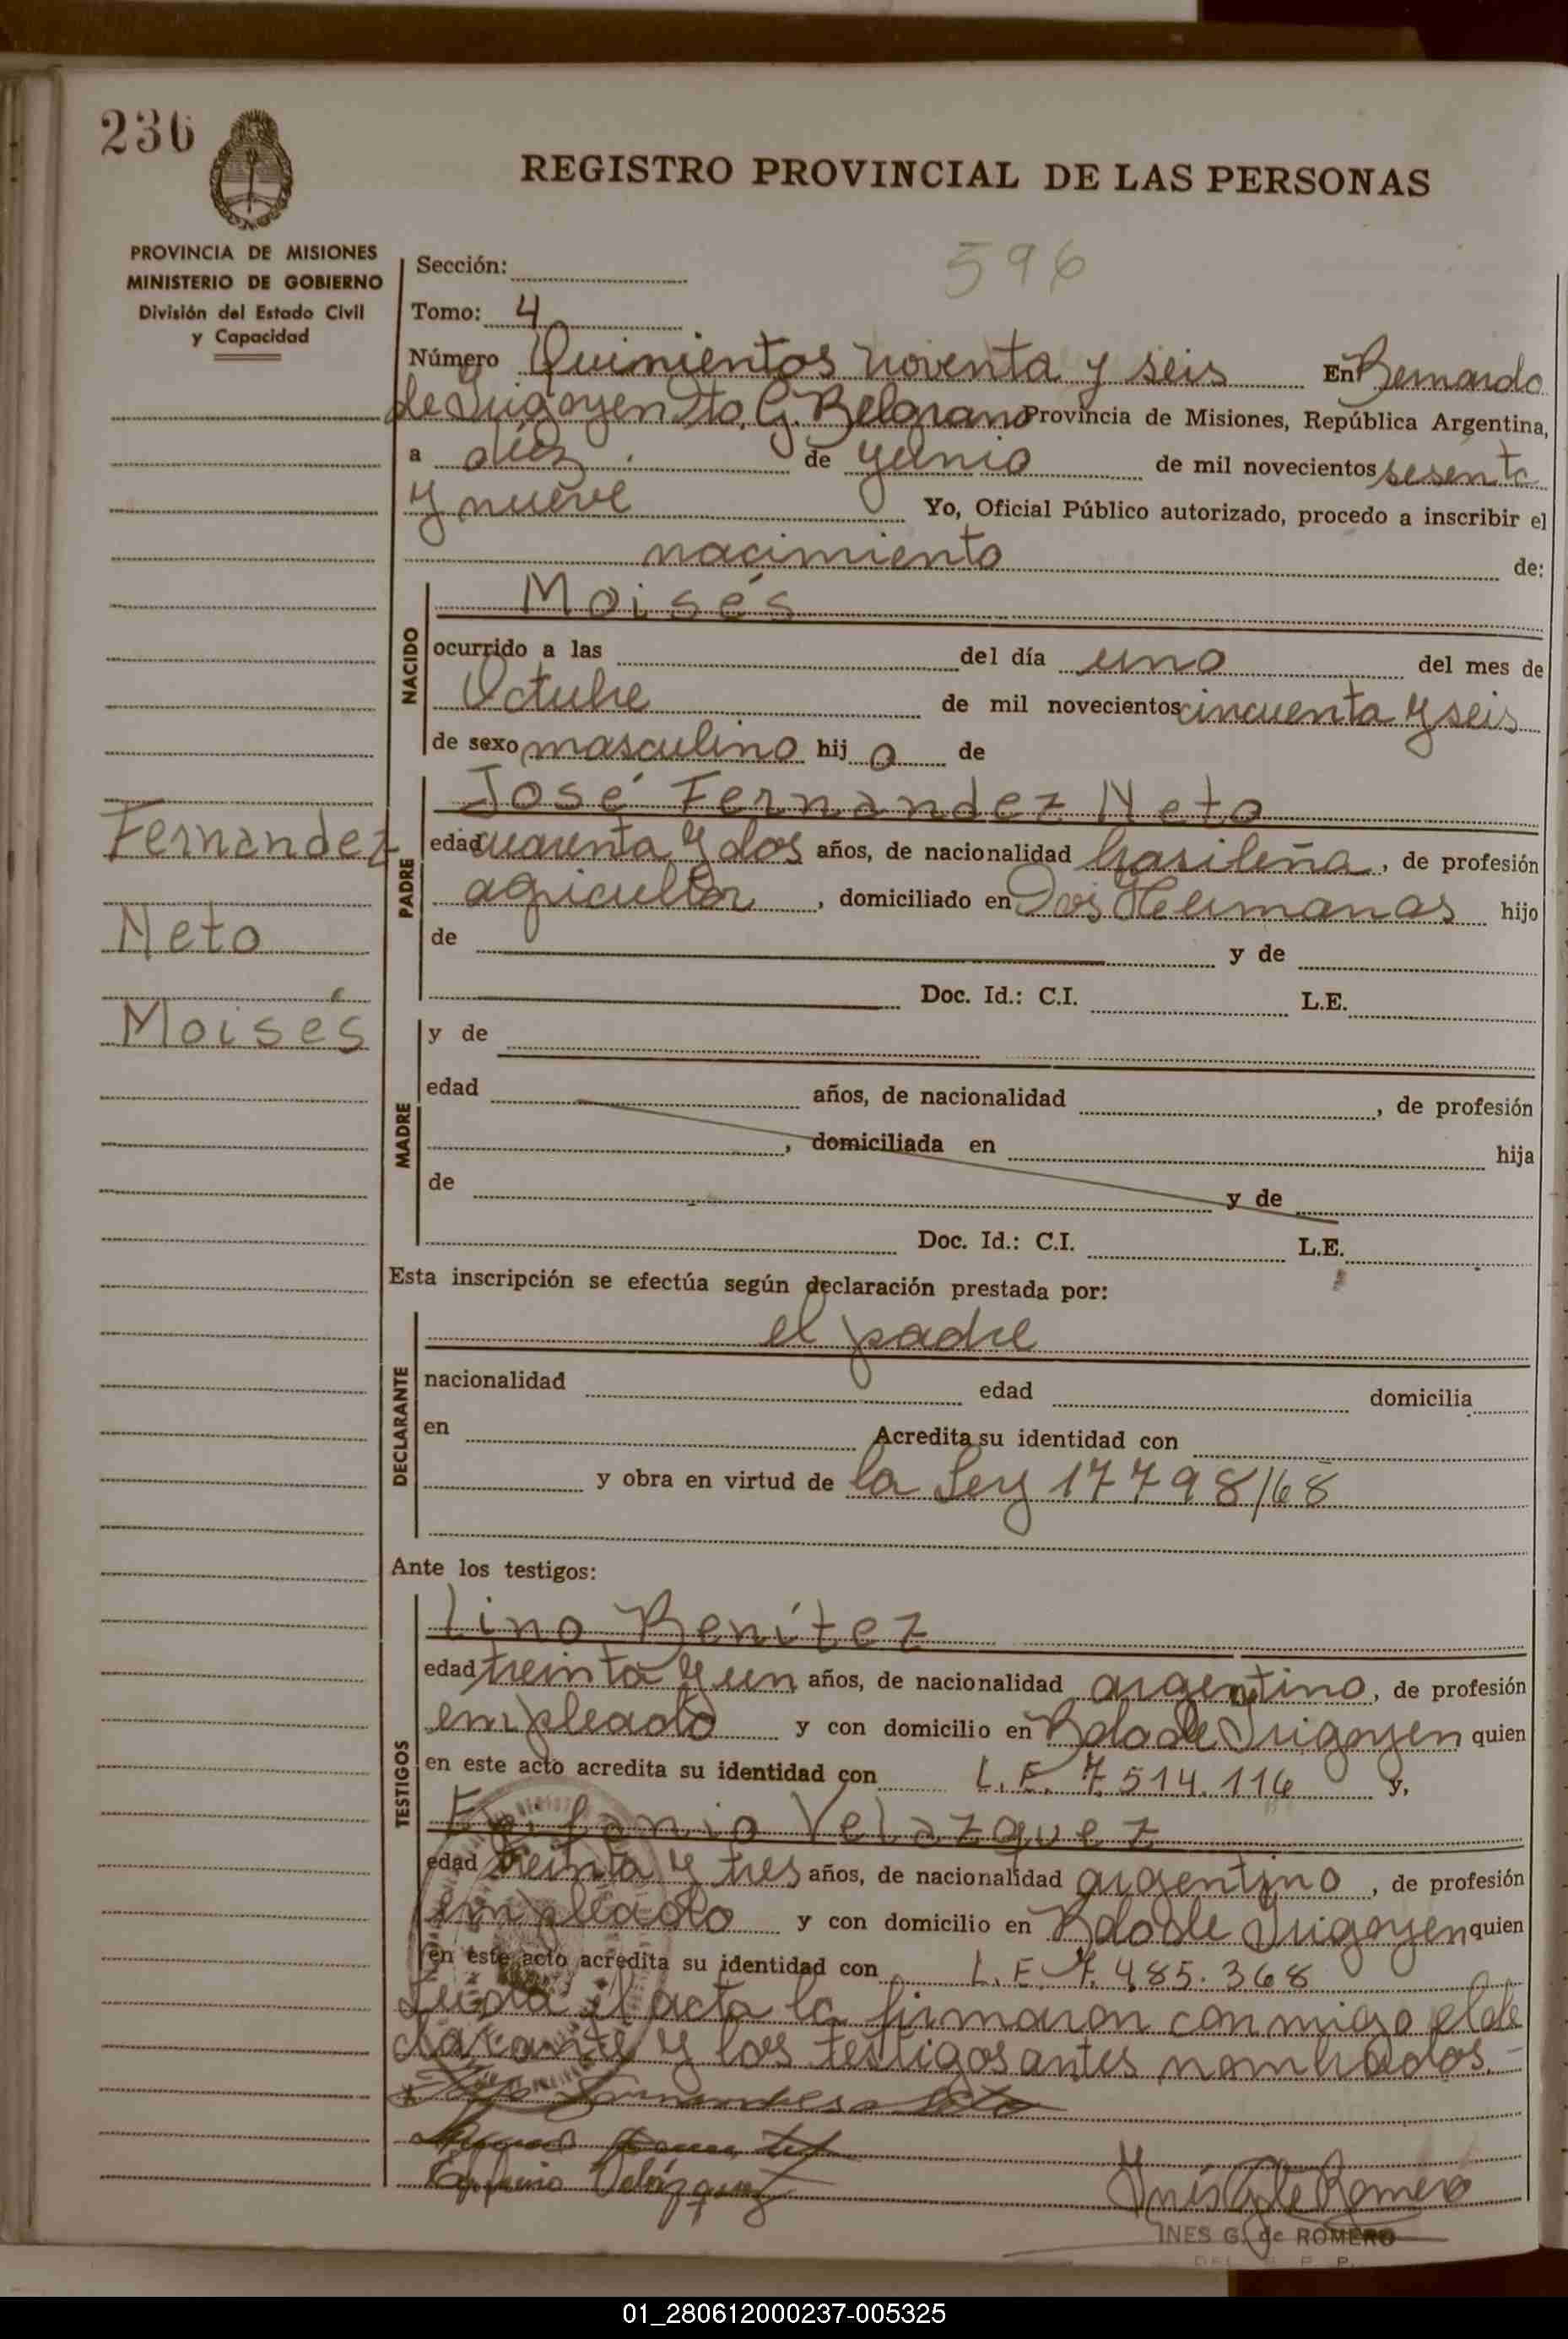 236
REGISTRO PROVINCIAL DE LAS PERSONAS
PROVINCIA DE MISIONES
MINISTERIO DE GOBIERNO
División del Estado Civil
y Capacidad
Sección:
596
Tomo: 4
Número Quinientos noventa y seis En Bernardo
de Irigoyen Dto. G. Belgrano Provincia de Misiones, República Argentina,
a diez de junio de mil novecientos sesenta
y nueve Yo, Oficial Público autorizado, procedo a inscribir el
nacimiento de:
NACIDO
Moisés
ocurrido a las del día uno del mes de
Octubre de mil novecientos cincuenta y seis
de sexo masculino hij o de
Fernandez
Neto
Moisés
PADRE
José Fernandez Neto
edad cuarenta y dos años, de nacionalidad brasileña, de profesión
agricultor, domiciliado en Dos Hermanas hijo
de y de
Doc. Id.: C.I. L.E.
MADRE
y de
edad años, de nacionalidad , de profesión
, domiciliada en hija
de y de
Doc. Id.: C.I. L.E.
Esta inscripción se efectúa según declaración prestada por:
DECLARANTE
el padre
nacionalidad edad domicilia
en Acredita su identidad con
y obra en virtud de la Ley 17798/68
Ante los testigos:
TESTIGOS
Lino Benítez
edad treinta y un años, de nacionalidad argentino, de profesión
empleado y con domicilio en Bdo de Irigoyen quien
en este acto acredita su identidad con L.E. 7.514.114 y,
Epifanio Velazquez
edad treinta y tres años, de nacionalidad argentino, de profesión
empleado y con domicilio en Bdo de Irigoyen quien
en este acto acredita su identidad con L.E. 7.485.368
Leída el acta la firmaron conmigo el de
clarante y los testigos antes nombrados.-
Epifanio Velázquez
Inés G de Romero
INES G. de ROMERO
01_280612000237-005325